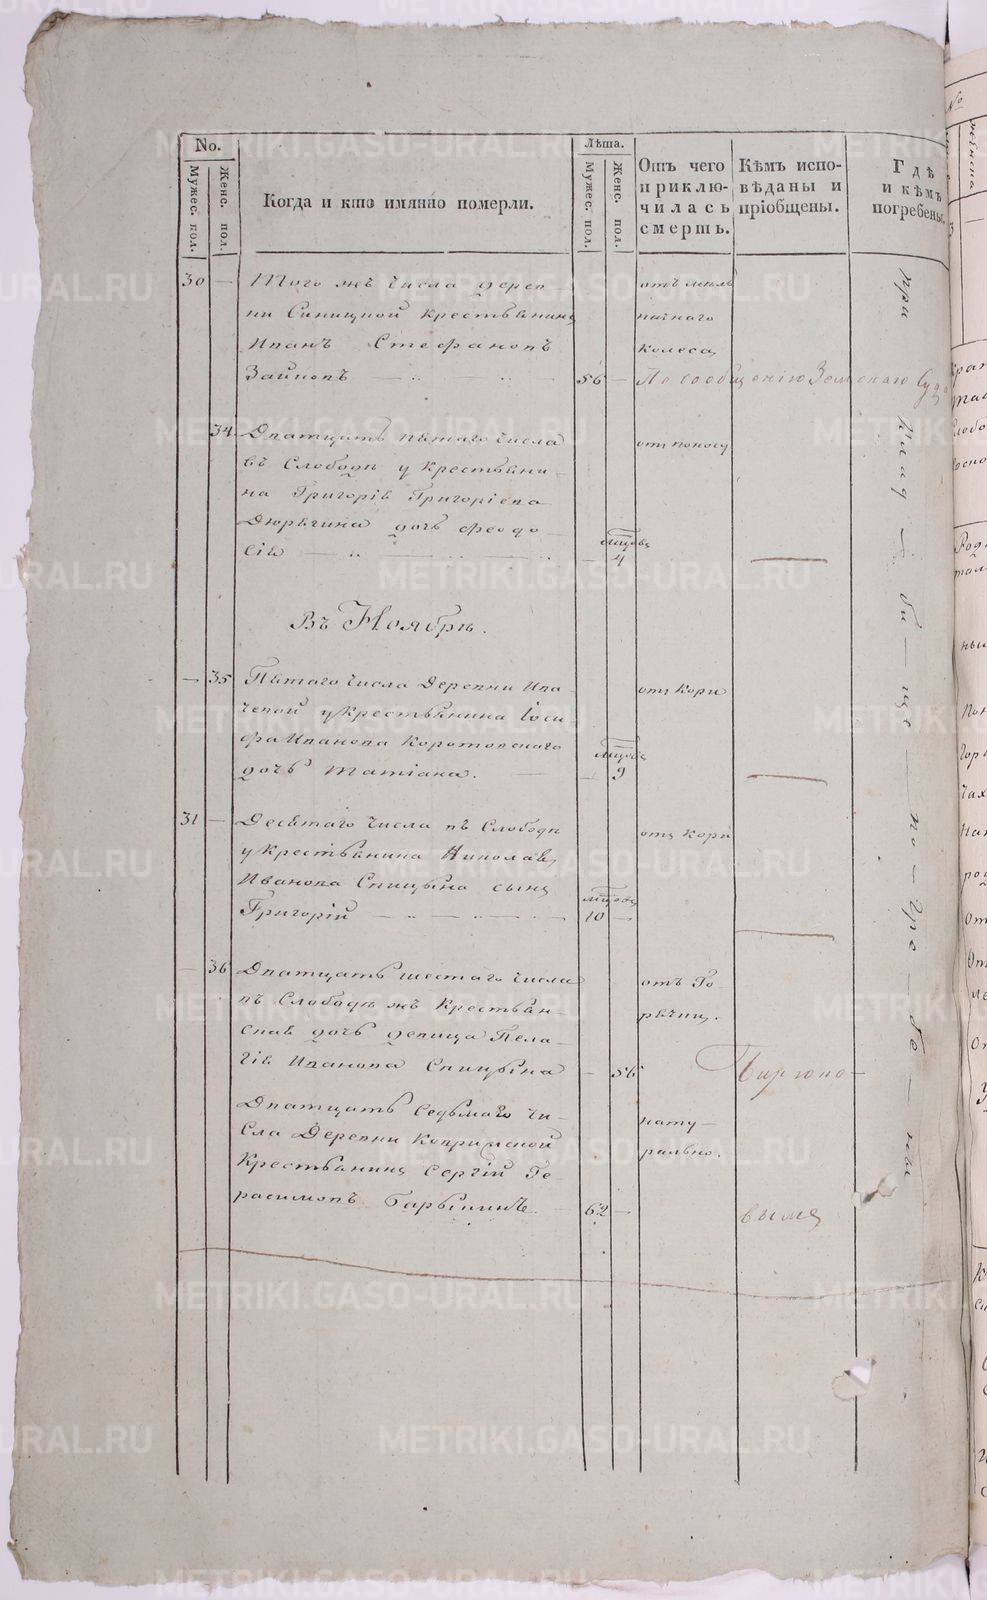 No.
Мужес. пол.
Женс. пол.
Когда и кто имянно померли.
Лѣта.
Мужес. пол.
Женс. пол.
Отъ чего приключилась смерть.
Кѣмъ исповѣданы и пріобщены.
Гдѣ и кѣмъ погребены.
30 — Того жъ числа дерев
ни Синицной крестьянинъ
Иванъ Стефановъ
Зайковъ — 56 —
отъ мель
ничнаго
колеса
По сообщенію Земскаго Суда
34. Дватцать пятаго числа
въ Слободѣ у крестьяни
на Григорія Григоріева
Дюрягина дочь Феодо
сія — 4
мцовъ
отъ поносу
Въ Ноябрѣ.
— 35 Пятаго числа Деревни Ива
чевой у крестьянина Іоси
фа Иванова Коротовскаго
дочь Татіана. — 9
мцовъ
отъ Кори
31 — Десятаго числа въ Слободѣ
у крестьянина Николая
Иванова Спицына сынъ
Григорій — 10 —
мцовъ
отъ кори
— 36 Дватцать шестаго числа
въ Слободѣ жъ крестьян
ская дочь девица Пела
гія Иванова Спицына — 56
отъ Го
рячиц.
Дватцать седьмаго чи
сла Деревни
Крестьянинъ Сергій Ге
расимовъ 62 —
нату
рально.
при клад — би — ще — по — гре — бе — ны
METRIKI.GASO-URAL.RU